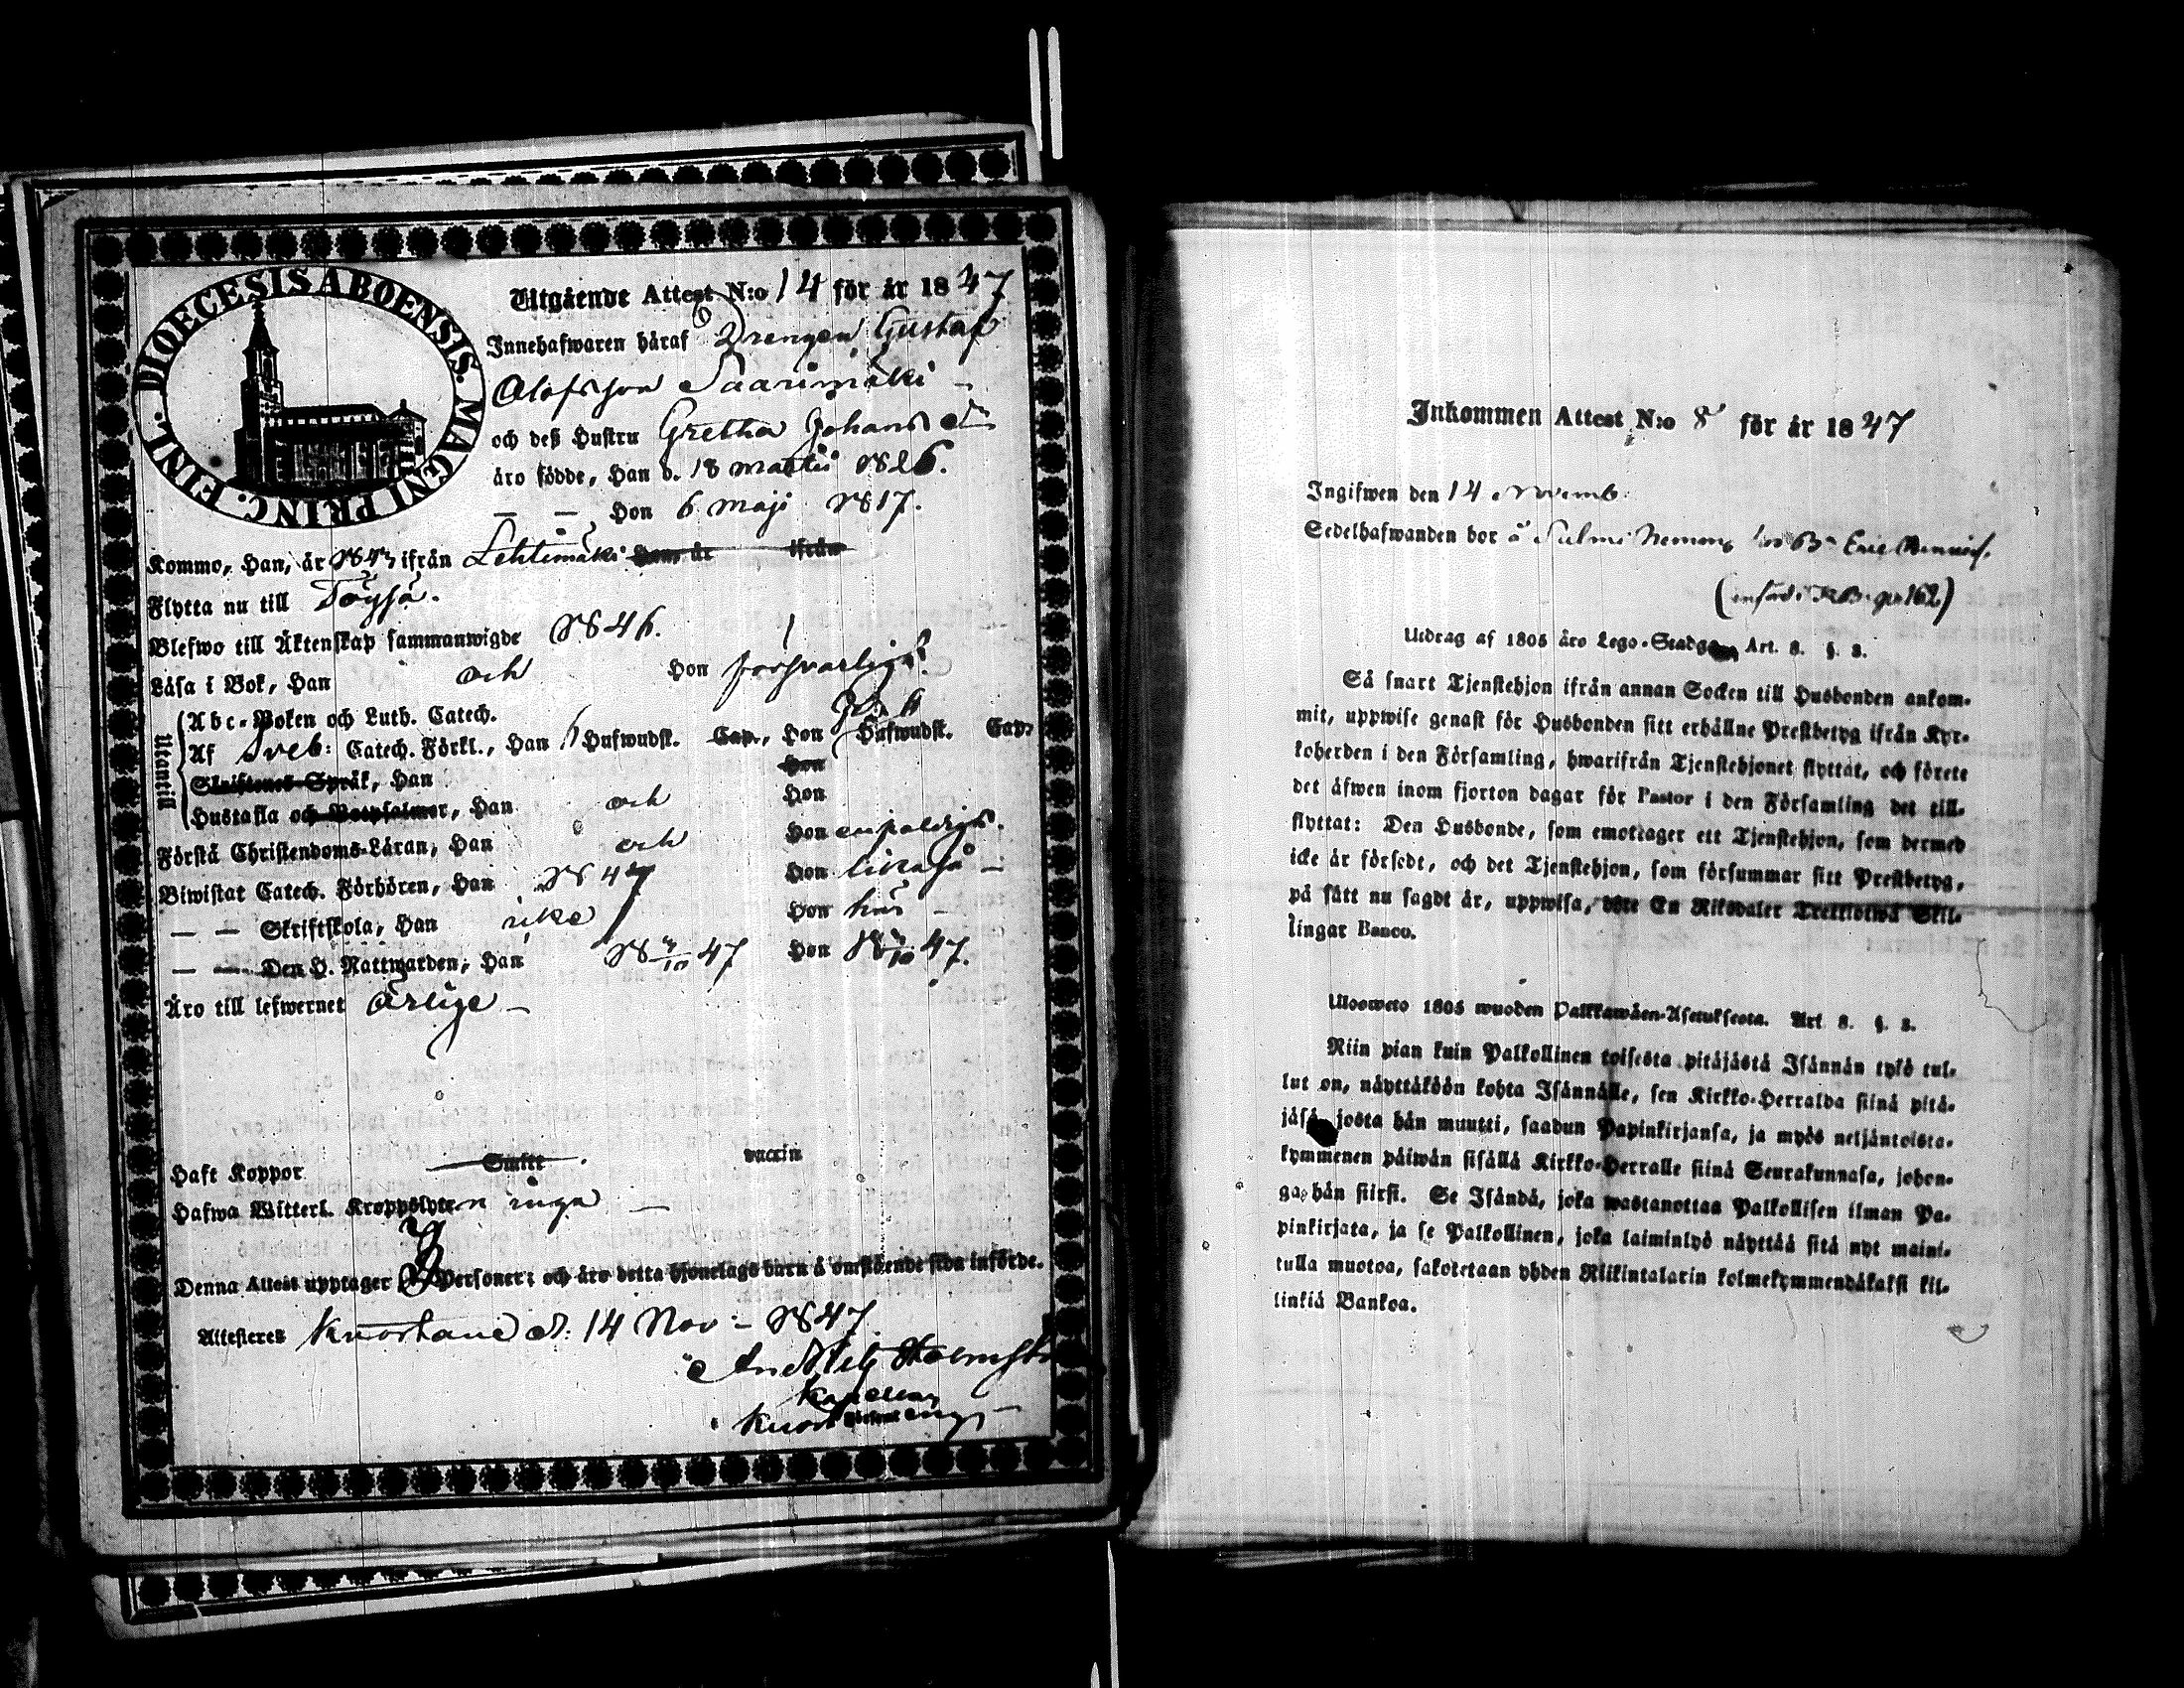 DIOECESIS ABOENSIS. MAGNI PRINC. FINL.
Utgående Attest N:o 14 för år 1847
Innehafwaren häraf Drengen Gustaf
Olofsson Saarimäki —
och deß Hustru Gretha Johansdr
äro födde, Han d. 18 martii 1826.
— — Hon 6 maji 1817.
Kommo, Han, år 1843 ifrån Lehtimäki Hon år ifrån
Flytta nu till Töysä.
Blefwo till Äktenskap sammanwigde 1846.
Läsa i Bok, Han och Hon försvarligt.
Utantill
Abc-Boken och Luth. Catech.
Af Sveb: Catech. Förkl., Han Hufwudst. Cap., Hon Hufwudst. Cap.
Skriftenes Språk, Han Hon
Hustafla och Botpsalmer, Han och Hon
Förstå Christendoms-Läran, Han och Hon enfaldigt.
Biwistat Catech. Förhören, Han 1847 Hon likaså —
— — Skriftskola, Han icke Hon —
— — Den H. Nattwarden, Han 18 /10 47 Hon 18 /10 47.
Äro till lefwernet ärlige —
Haft Koppor Smitt vaccin
Hafwa Witterl. Kroppslyten inga —
Denna Attest upptager Personer; och äro detta hjonelags barn å omstående sida införde.
Attesteres Kuortane d. 14 Nov:— 1847
Holmst
Kapellan
Kuort
Inkommen Attest N:o 8 för år 1847
Ingifwen den 14 Novemb:
Sedelhafwanden bor å Sulmi Eric
(införd i KB. 162)
Utdrag af 1805 åro Lego-Stadgan Art. 8. §. 2.
Så snart Tjenstehjon ifrån annan Socken till Husbonden ankom-
mit, uppwise genast för Husbonden sitt erhållne Prestbetyg ifrån Kyr-
koherden i den Församling, hwarifrån Tjenstehjonet flyttat, och förete
det äfwen inom fjorton dagar för Pastor i den Församling det till-
flyttat: Den Husbonde, som emottager ett Tjenstehjon, som dermed
icke är försedt, och det Tjenstehjon, som försummar sitt Prestbetyg,
på sätt nu sagdt är, uppwisa, böte En Riksdaler Trettiotwå Skil-
lingar Banco.
Ulosweto 1805 wuoden Palkkawäen-Asetuksesta. Art. 8. §. 2.
Niin pian kuin Palkollinen toisesta pitäjästä Isännän tykö tul-
lut on, näyttäköön kohta Isännälle, sen Kirkko-Herralda siinä pitä-
jäsä, josta hän muutti, saadun Papinkirjansa, ja myös neljäntoista-
kymmenen päiwän sisällä Kirkko-Herralle siinä Seurakunnasa, johon-
ga hän siirsi. Se Isändä, joka wastanottaa Palkollisen ilman Pa-
pinkirjata, ja se Palkollinen, joka laiminlyö näyttää sitä nyt maini-
tulla muotoa, sakotetaan yhden Riikintalarin kolmekymmendäkaksi kil-
linkiä Bankoa.